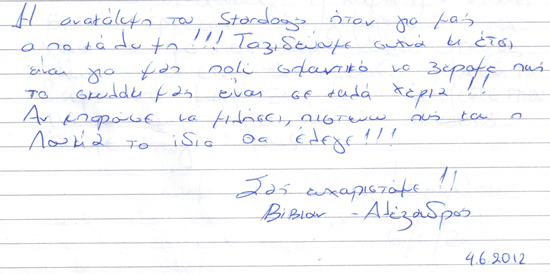 Η ανακάλυψη του Stardogs ήταν για μας
αποκάλυψη!!! Ταξιδεύουμε συχνά κ έτσι
είναι για μας πολύ σημαντικό να ξέρουμε πως
το σκυλάκι μας είναι σε καλά χέρια!!
Αν μπορούσε να μιλήσει, πιστεύω πως και η
Λουκία το ίδιο θα έλεγε!!!
Σας ευχαριστούμε!!
Βίβιαν - Αλέξανδρος
4.6.2012